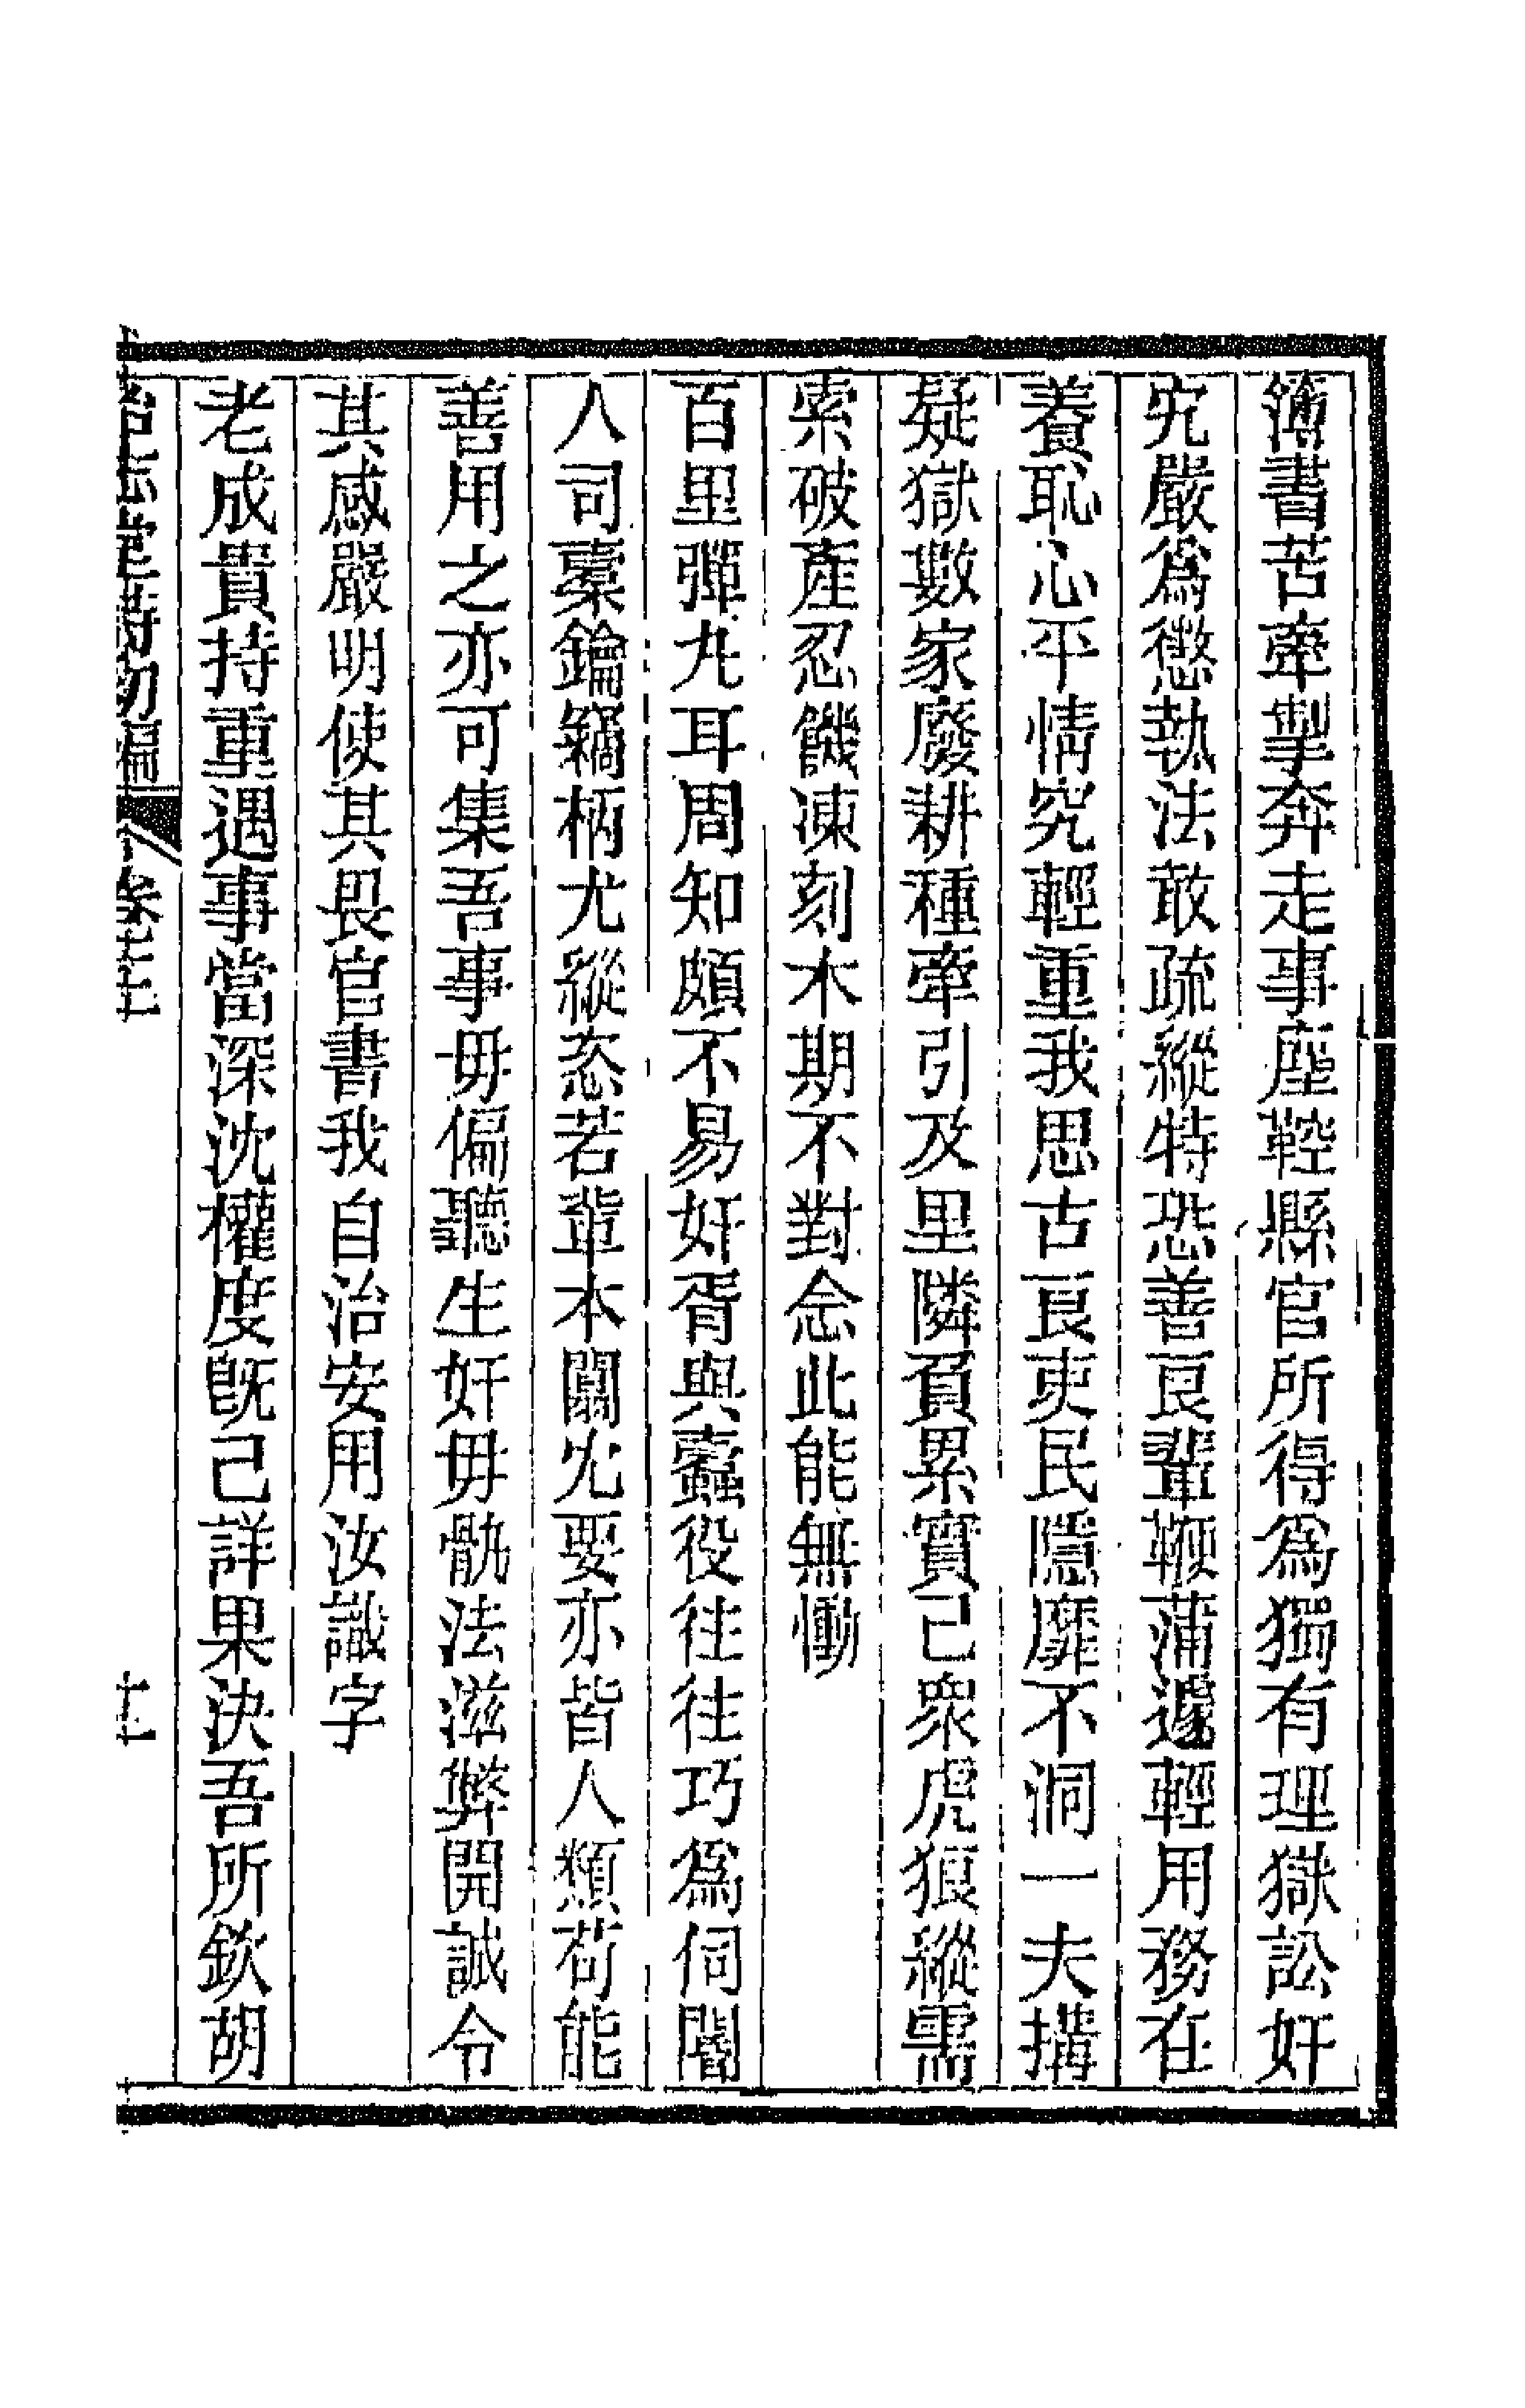 簿書苦牽掣奔走事塵鞚縣官所得爲獨有理獄訟奸
宄嚴爲懲執法敢疏縱特恐善良輩鞭蒲遽輕用務在
養恥心平情究輕重我思古良吏民隱靡不洞一夫搆
疑獄數家廢耕種牽引及里隣負累實已衆虎狼縱需
索破產忍饑凍刻木期不對念此能無慟
百里彈丸耳周知頗不易奸胥與蠹役往往巧爲伺闇
人司橐鑰竊柄尤縱恣若輩本闒冗要亦皆人類苟能
善用之亦可集吾事毋偏聽生奸毋骫法滋弊開誠令
其感嚴明使其畏官書我自治安用汝識字
老成貴持重遇事當深沈權度旣已詳果決吾所欽胡
詩初編
卷十三
十一